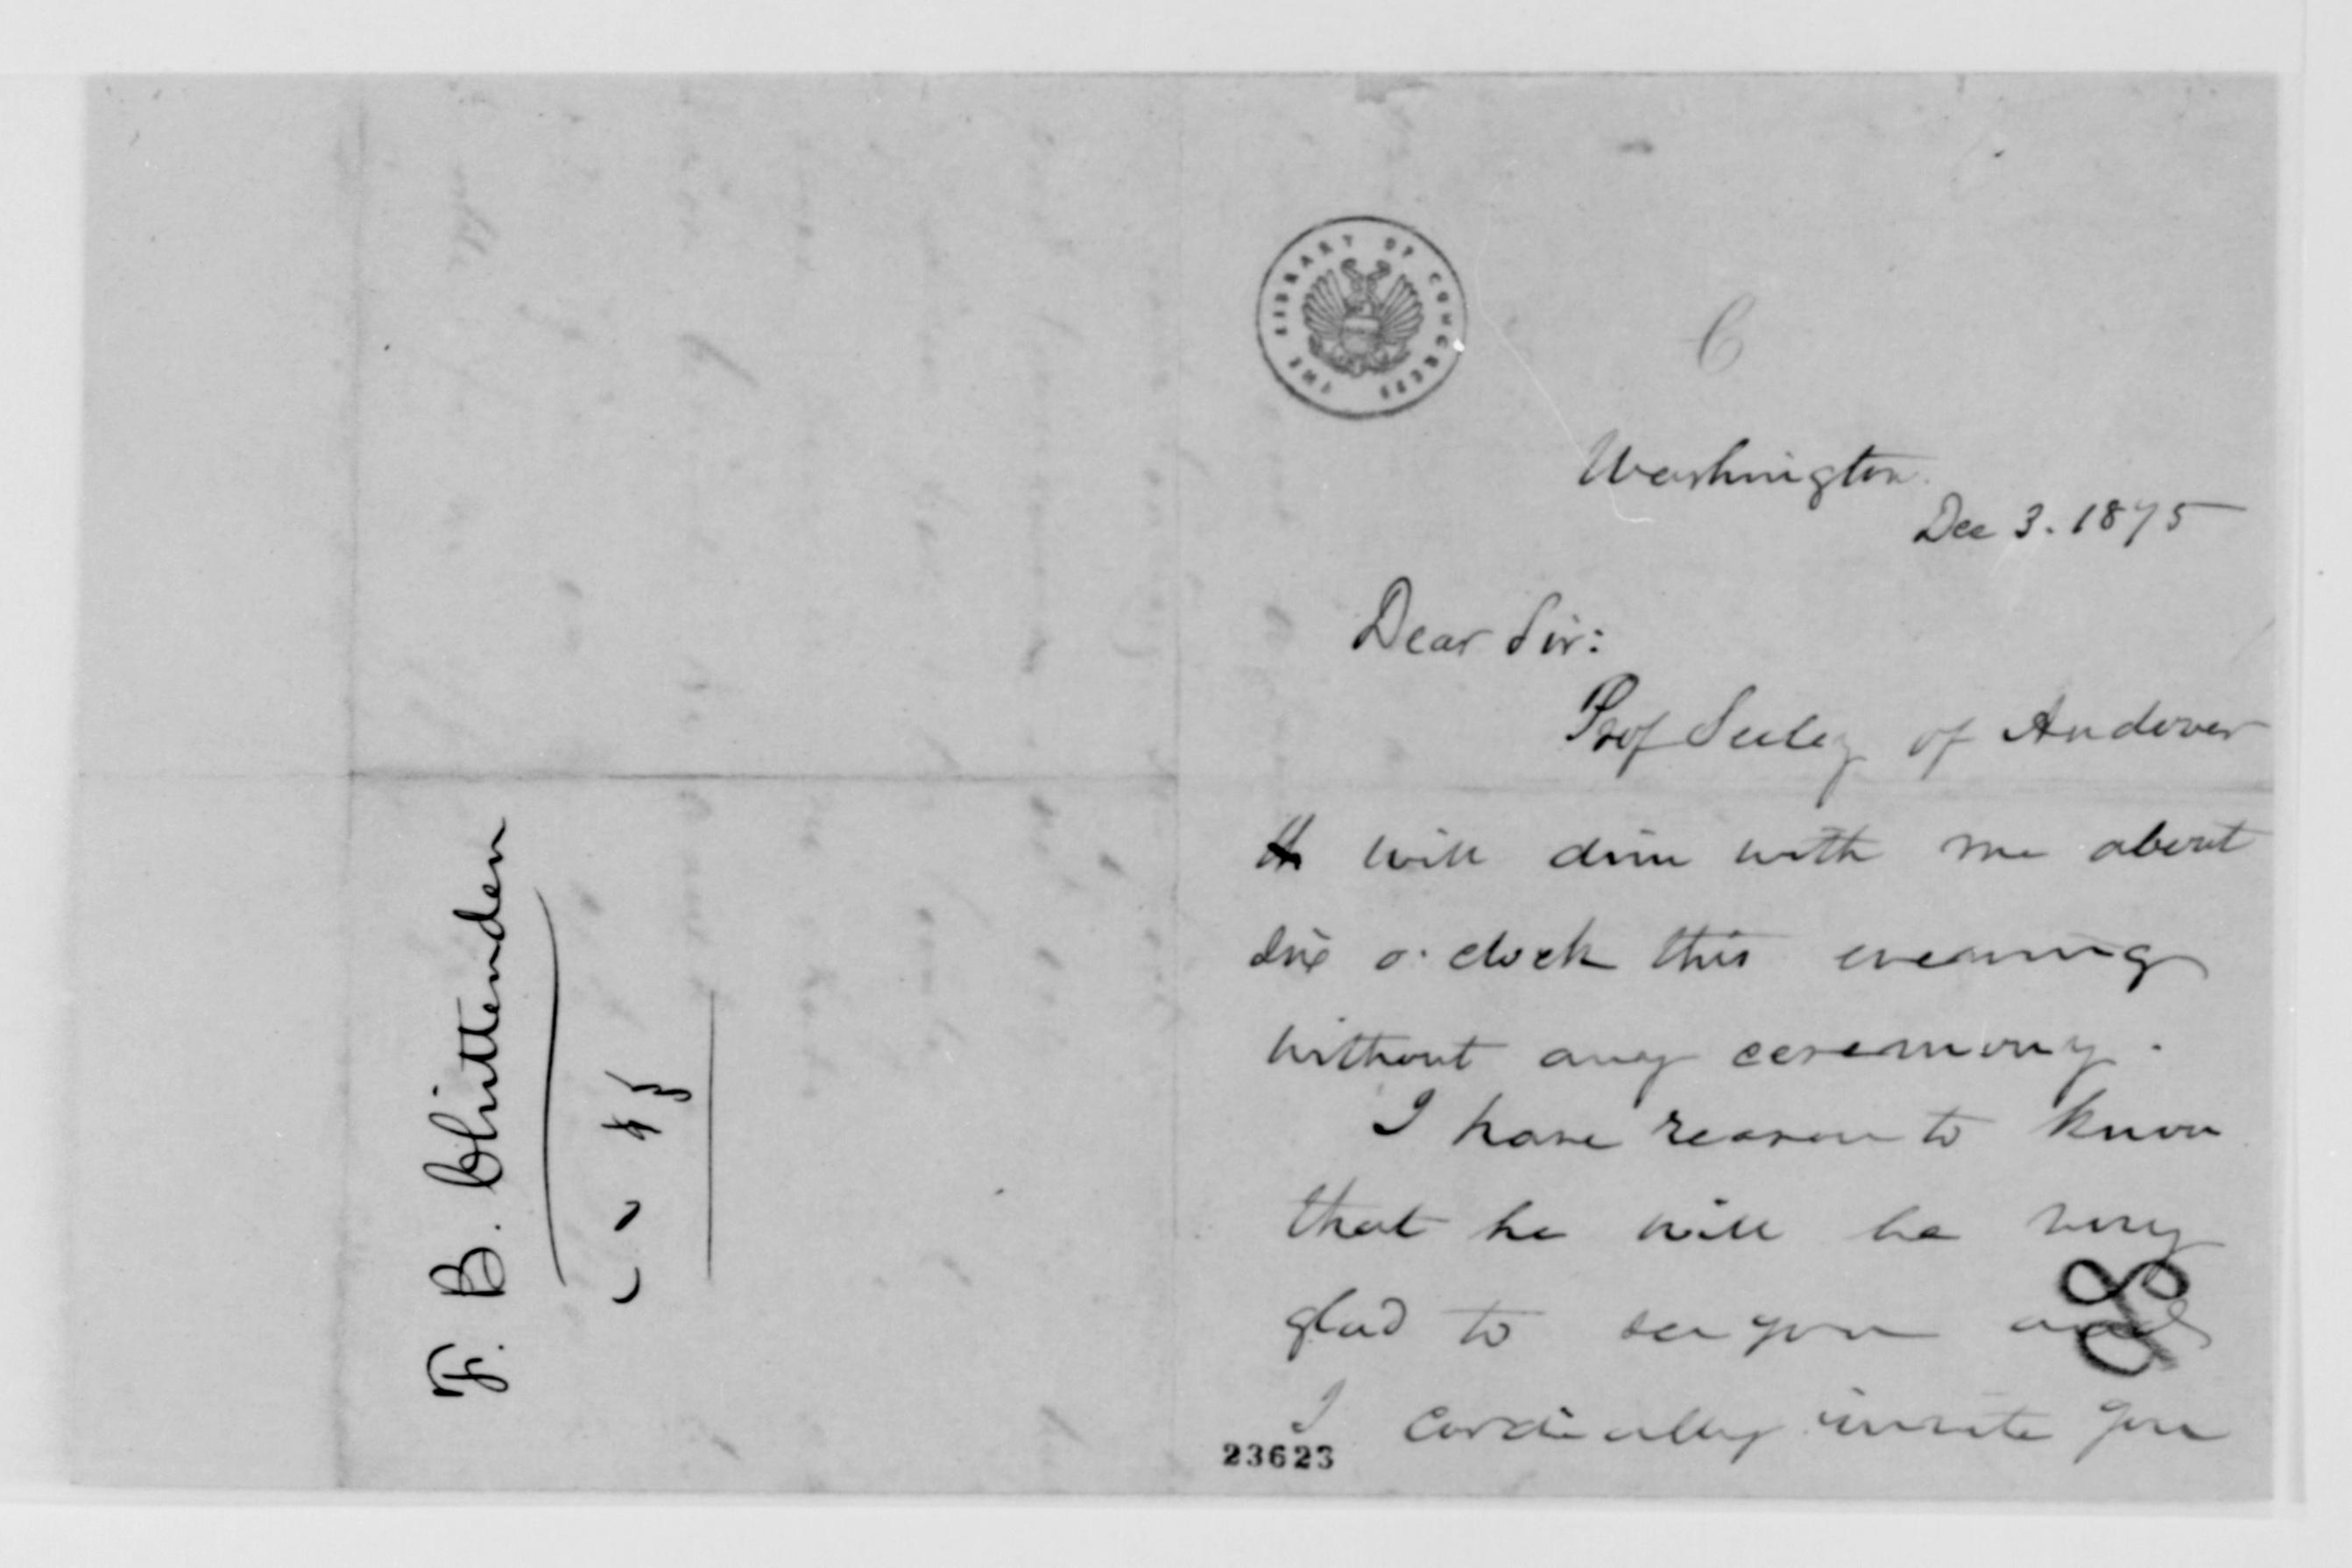 THE LIBRARY OF CONGRESS
6
Washington
Dec 3. 1875
Dear Sir:
Prof Seeley of Andover
will dine with me about
six o'clock this evening
without any ceremony.
I have reason to know
that he will be very
glad to see you and
I cordially invite you
23623
F. B. Chittenden